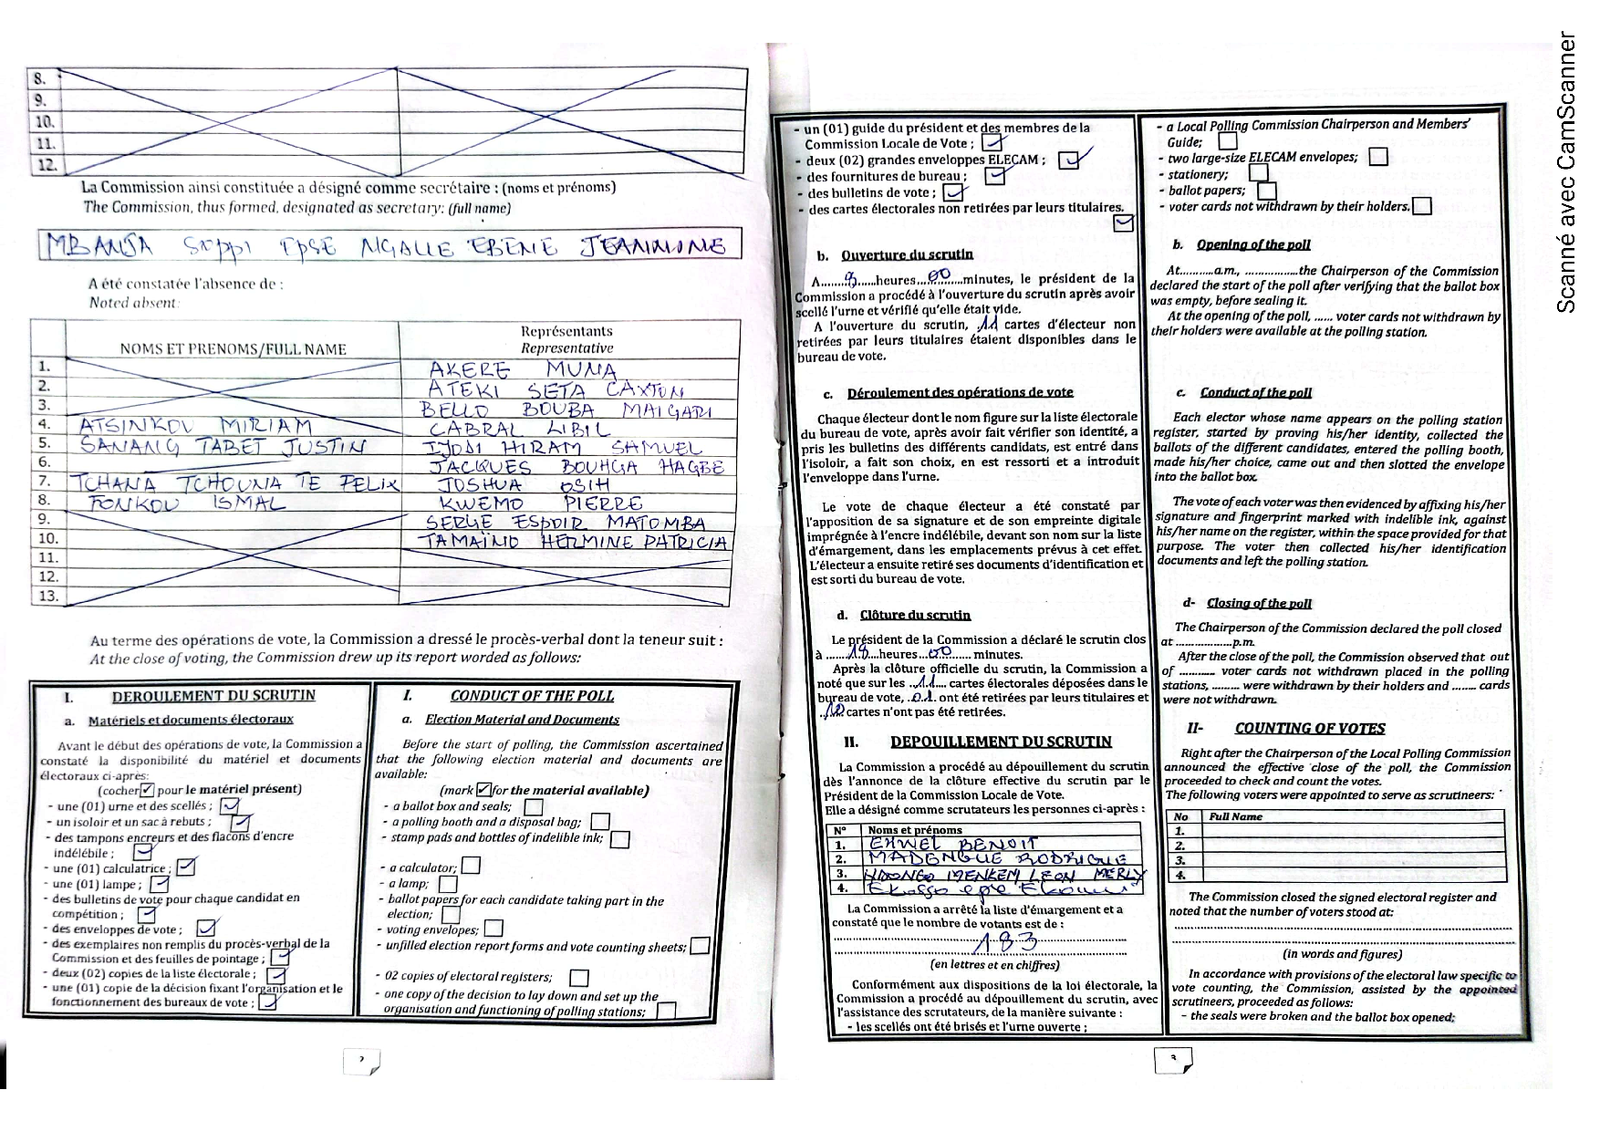 8.
9.
10.
11.
12.
La Commission ainsi constituée a désigné comme secrétaire : (noms et prénoms)
The Commission, thus formed, designated as secretary: (full name)
MBANJA Seppi EPSE NGALLE EBENE JEANNINE
A été constatée l'absence de :
Noted absent:
NOMS ET PRENOMS/FULL NAME
Représentants
Representative
1. AKERE MUNA
2. ATEKI SETA CAXTON
3. BELLO BOUBA MAIGARI
4. ATSINKOU MIRIAM CABRAL LIBIL
5. SANANG TABET JUSTIN IJODI HIRAM SAMUEL
6. JACQUES BOUHGA HAGBE
7. TCHANA TCHOUNA TE FELIX JOSHUA OSIH
8. FONKOU ISMAL KWEMO PIERRE
9. SERGE ESPOIR MATOMBA
10. TAMAÏNO HERMINE PATRICIA
11.
12.
13.
Au terme des opérations de vote, la Commission a dressé le procès-verbal dont la teneur suit :
At the close of voting, the Commission drew up its report worded as follows:
I. DEROULEMENT DU SCRUTIN
a. Matériels et documents électoraux
Avant le début des opérations de vote, la Commission a
constaté la disponibilité du matériel et documents
électoraux ci-après:
(cocher ✓ pour le matériel présent)
- une (01) urne et des scellés ; ✓
- un isoloir et un sac à rebuts ; ✓
- des tampons encreurs et des flacons d'encre
indélébile ; ✓
- une (01) calculatrice ; ✓
- une (01) lampe ; ✓
- des bulletins de vote pour chaque candidat en
compétition ; ✓
- des enveloppes de vote ; ✓
- des exemplaires non remplis du procès-verbal de la
Commission et des feuilles de pointage ; ✓
- deux (02) copies de la liste électorale ; ✓
- une (01) copie de la décision fixant l'organisation et le
fonctionnement des bureaux de vote ; ✓
I. CONDUCT OF THE POLL
a. Election Material and Documents
Before the start of polling, the Commission ascertained
that the following election material and documents are
available:
(mark ✓ for the material available)
- a ballot box and seals;
- a polling booth and a disposal bag;
- stamp pads and bottles of indelible ink;
- a calculator;
- a lamp;
- ballot papers for each candidate taking part in the
election;
- voting envelopes;
- unfilled election report forms and vote counting sheets;
- 02 copies of electoral registers;
- one copy of the decision to lay down and set up the
organisation and functioning of polling stations;
2
- un (01) guide du président et des membres de la
Commission Locale de Vote ; ✓
- deux (02) grandes enveloppes ELECAM ; ✓
- des fournitures de bureau ; ✓
- des bulletins de vote ; ✓
- des cartes électorales non retirées par leurs titulaires. ✓
b. Ouverture du scrutin
A........8......heures...00.....minutes, le président de la
Commission a procédé à l'ouverture du scrutin après avoir
scellé l'urne et vérifié qu'elle était vide.
A l'ouverture du scrutin, .11 cartes d'électeur non
retirées par leurs titulaires étaient disponibles dans le
bureau de vote.
c. Déroulement des opérations de vote
Chaque électeur dont le nom figure sur la liste électorale
du bureau de vote, après avoir fait vérifier son identité, a
pris les bulletins des différents candidats, est entré dans
l'isoloir, a fait son choix, en est ressorti et a introduit
l'enveloppe dans l'urne.
Le vote de chaque électeur a été constaté par
l'apposition de sa signature et de son empreinte digitale
imprégnée à l'encre indélébile, devant son nom sur la liste
d'émargement, dans les emplacements prévus à cet effet.
L'électeur a ensuite retiré ses documents d'identification et
est sorti du bureau de vote.
d. Clôture du scrutin
Le président de la Commission a déclaré le scrutin clos
à .......18....heures....00........ minutes.
Après la clôture officielle du scrutin, la Commission a
noté que sur les ..11.... cartes électorales déposées dans le
bureau de vote, ..01. ont été retirées par leurs titulaires et
..10 cartes n'ont pas été retirées.
II. DEPOUILLEMENT DU SCRUTIN
La Commission a procédé au dépouillement du scrutin
dès l'annonce de la clôture effective du scrutin par le
Président de la Commission Locale de Vote.
Elle a désigné comme scrutateurs les personnes ci-après :
N° Noms et prénoms
1. EKWEL BENOIT
2. MADENGUE RODRIGUE
3. NDONGO MENKEM LEON MERLY
4. Ekasso epe
La Commission a arrêté la liste d'émargement et a
constaté que le nombre de votants est de :
183
(en lettres et en chiffres)
Conformément aux dispositions de la loi électorale, la
Commission a procédé au dépouillement du scrutin, avec
l'assistance des scrutateurs, de la manière suivante :
- les scellés ont été brisés et l'urne ouverte ;
- a Local Polling Commission Chairperson and Members'
Guide;
- two large-size ELECAM envelopes;
- stationery;
- ballot papers;
- voter cards not withdrawn by their holders.
b. Opening of the poll
At..........a.m., ...................the Chairperson of the Commission
declared the start of the poll after verifying that the ballot box
was empty, before sealing it.
At the opening of the poll, ...... voter cards not withdrawn by
their holders were available at the polling station.
c. Conduct of the poll
Each elector whose name appears on the polling station
register, started by proving his/her identity, collected the
ballots of the different candidates, entered the polling booth,
made his/her choice, came out and then slotted the envelope
into the ballot box.
The vote of each voter was then evidenced by affixing his/her
signature and fingerprint marked with indelible ink, against
his/her name on the register, within the space provided for that
purpose. The voter then collected his/her identification
documents and left the polling station.
d- Closing of the poll
The Chairperson of the Commission declared the poll closed
at .................p.m.
After the close of the poll, the Commission observed that out
of ........... voter cards not withdrawn placed in the polling
stations, ......... were withdrawn by their holders and ........ cards
were not withdrawn.
II- COUNTING OF VOTES
Right after the Chairperson of the Local Polling Commission
announced the effective close of the poll, the Commission
proceeded to check and count the votes.
The following voters were appointed to serve as scrutineers:
No Full Name
1.
2.
3.
4.
The Commission closed the signed electoral register and
noted that the number of voters stood at:
(in words and figures)
In accordance with provisions of the electoral law specific to
vote counting, the Commission, assisted by the appointed
scrutineers, proceeded as follows:
- the seals were broken and the ballot box opened;
3
Scanné avec CamScanner